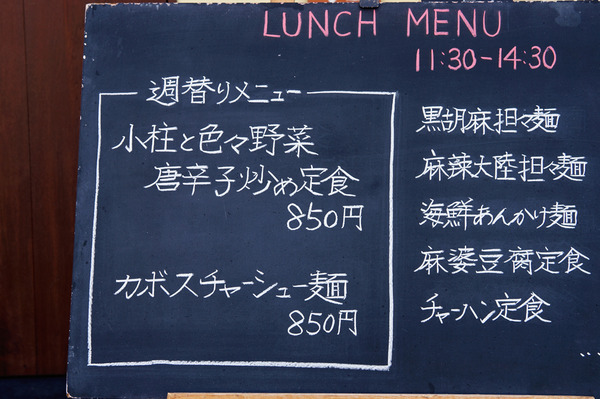 LUNCH MENU
11:30-14:30
週替りメニュー
小柱と色々野菜
唐辛子炒め定食
850円
カボスチャーシュー麺
850円
黒胡麻担々麺
麻辣大陸担々麺
海鮮あんかけ麺
麻婆豆腐定食
チャーハン定食
...